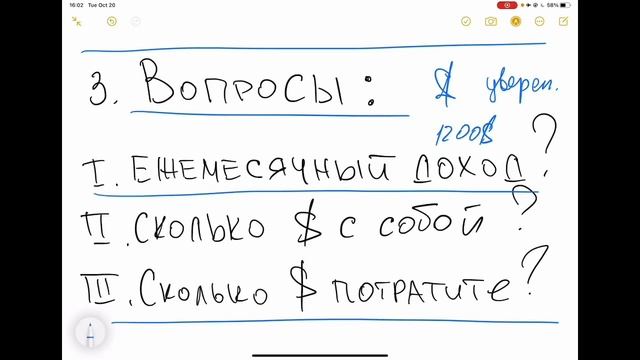 16:02 Tue Oct 20 58%
3. Вопросы: $ уверен.
1200$
I. ежемесячный доход?
II. Сколько $ с собой?
III. Сколько $ потратите?